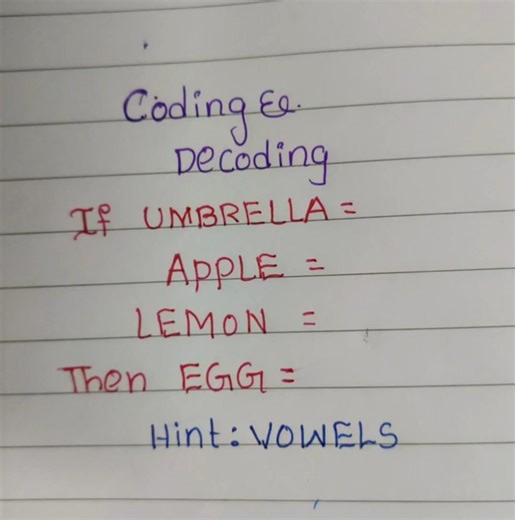 Coding &
Decoding
If UMBRELLA =
APPLE =
LEMON =
Then EGG =
Hint: VOWELS